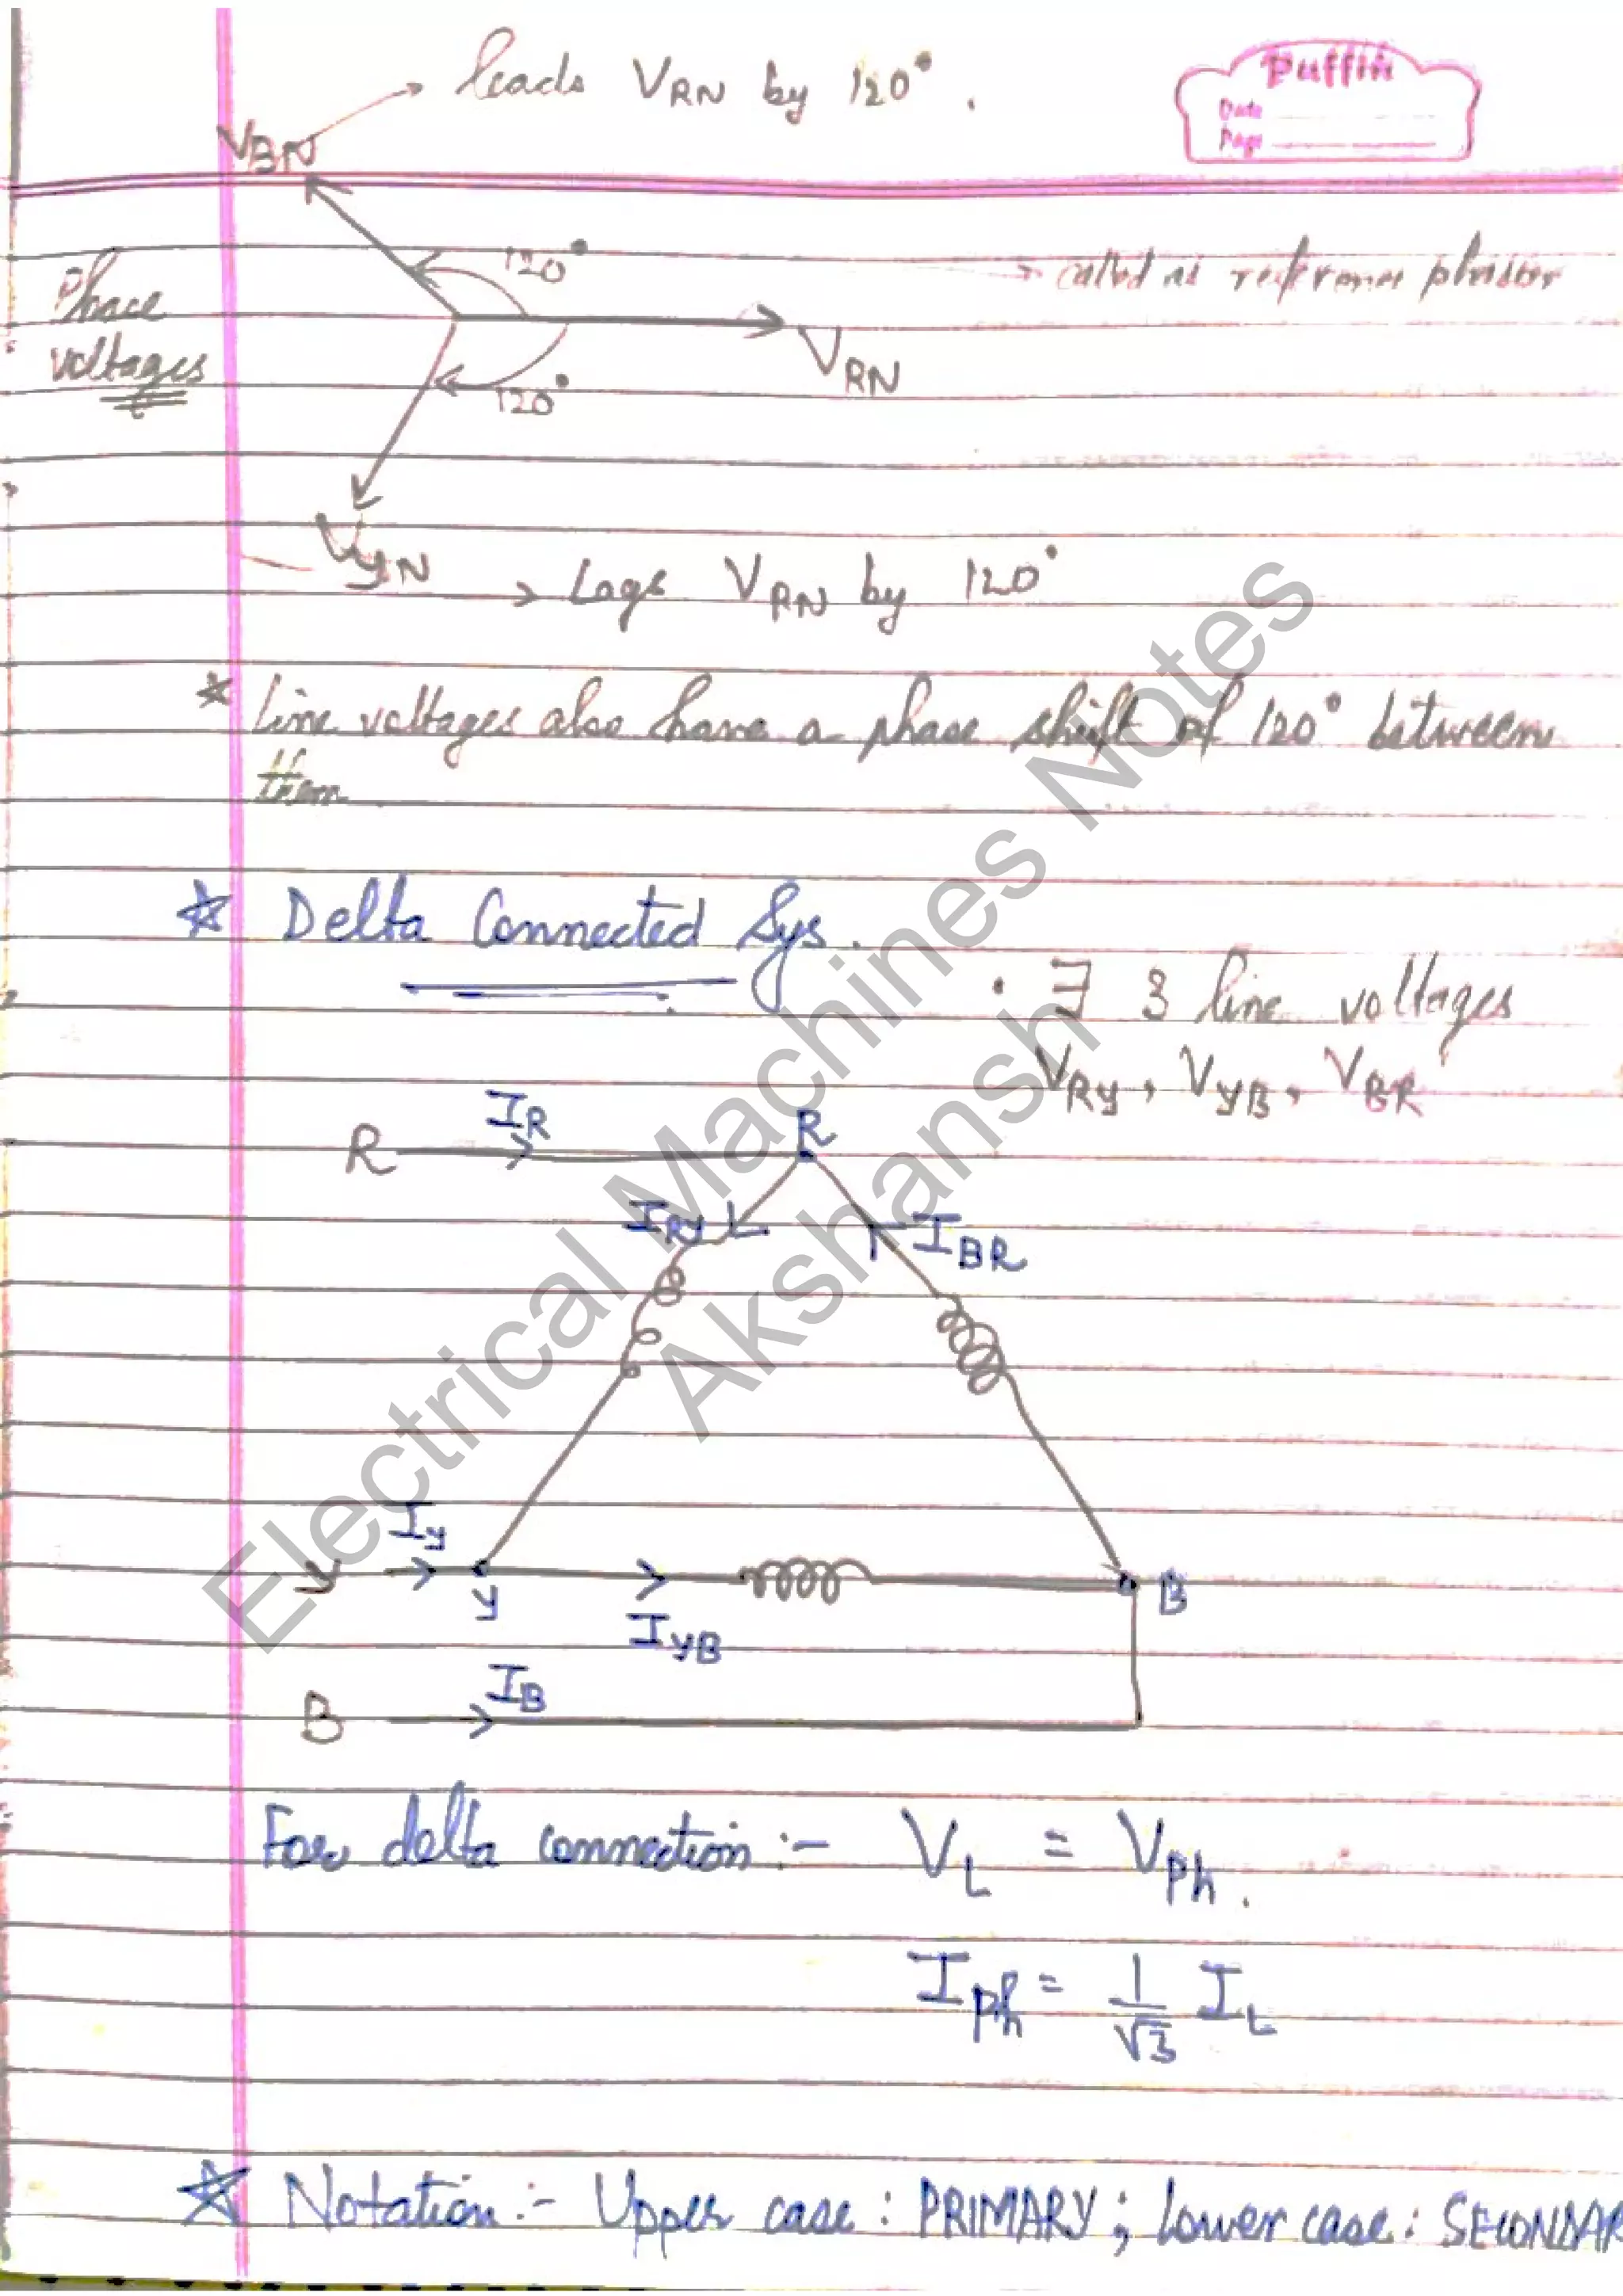 leads VRN by 120° .
Puffin
Date
Page
VBN
120°
→ called as reference phasor
Phase
voltages
VRN
120°
VYN → Lags VRN by 120°
* Line voltages also have a phase shift of 120° between
them
* Delta Connected Sys.
• ∃ 3 line voltages
VRY, VYB, VBR
R IR R
IRY IBR
Y IY Y IYB B
B IB
For delta connection :- VL = Vph.
Iph = 1/√3 IL
* Notation :- Upper case : PRIMARY ; Lower case : SECONDAR
Electrical Machines Notes
Akshansh